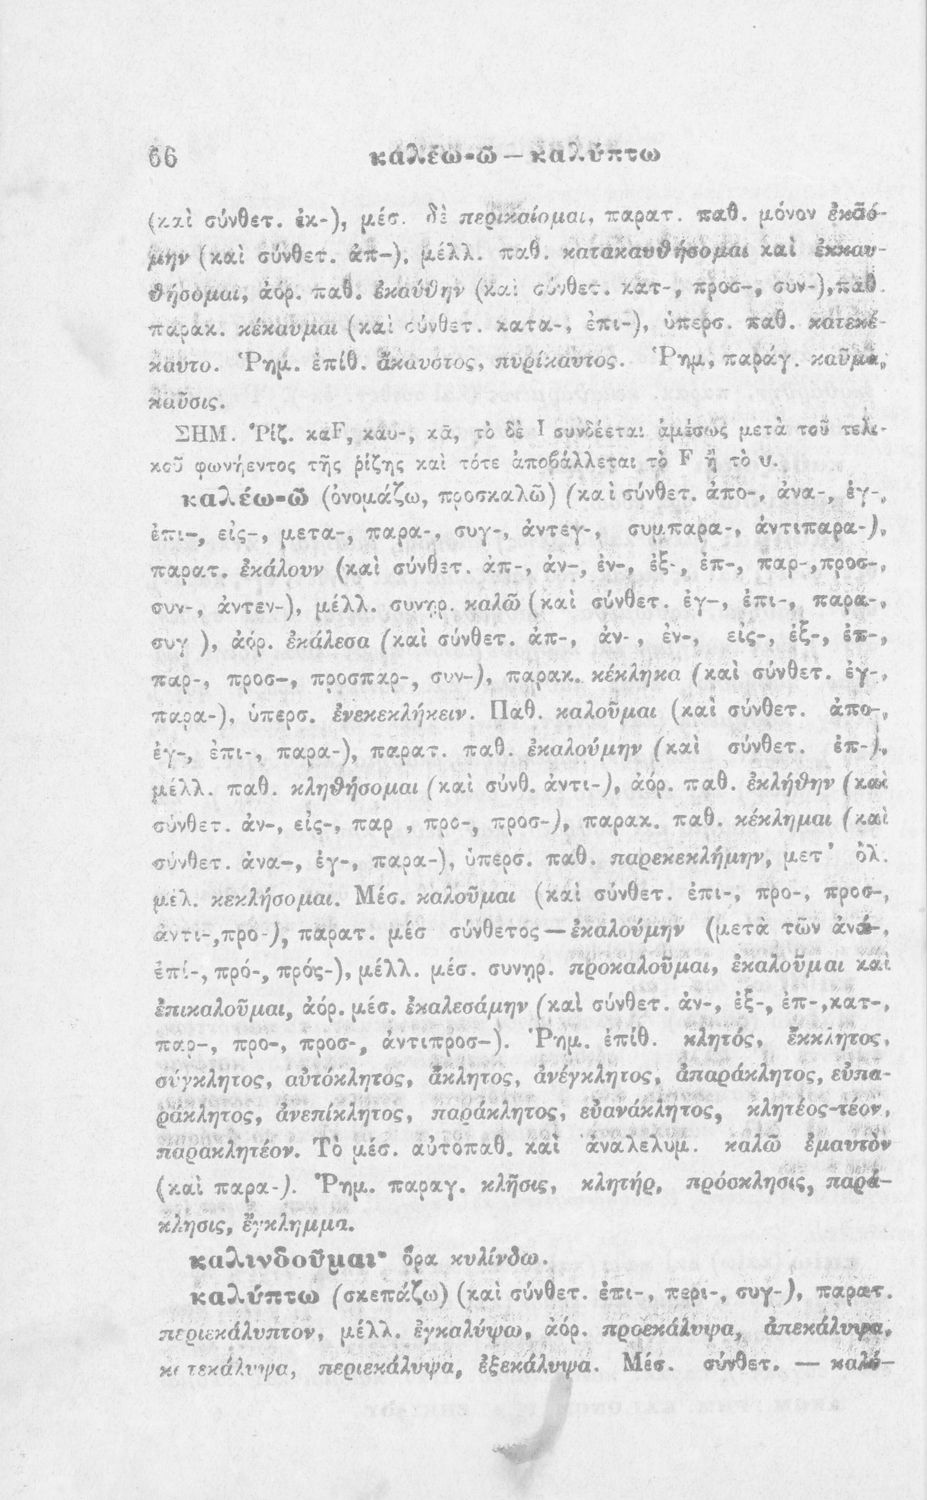 66 καλέω-ῶ — καλύπτω
(καὶ σύνθετ. ἐκ-), μέσ. δὲ περικαίομαι, παρατ. παθ. μόνον ἐκαό-
μην (καὶ σύνθετ. ἀπ-), μέλλ. παθ. κατακαυθήσομαι καὶ ἐκκαυ-
θήσομαι, ἀόρ. παθ. ἐκαύθην (καὶ σύνθετ. κατ-, προσ-, συν-), παθ.
παρακ. κέκαυμαι (καὶ σύνθετ. κατα-, ἐπι-), ὑπερσ. παθ. κατεκέ-
καυτο. Ῥημ. ἐπίθ. ἄκαυστος, πυρίκαυτος. Ῥημ. παράγ. καῦμα,
καῦσις.
ΣΗΜ. Ῥίζ. καF, καυ-, κᾱ, τὸ δὲ Ι συνδέεται ἀμέσως μετὰ τοῦ τελι-
κοῦ φωνήεντος τῆς ῥίζης καὶ τότε ἀποβάλλεται τὸ F ἢ τὸ υ.
καλέω-ῶ (ὀνομάζω, προσκαλῶ) (καὶ σύνθετ. ἀπο-, ἀνα-, ἐγ-,
ἐπι-, εἰς-, μετα-, παρα-, συγ-, ἀντεγ-, συμπαρα-, ἀντιπαρα-),
παρατ. ἐκάλουν (καὶ σύνθετ. ἀπ-, ἀν-, ἐν-, ἐξ-, ἐπ-, παρ-, προσ-,
συν-, ἀντεν-), μέλλ. συνῃρ. καλῶ (καὶ σύνθετ. ἐγ-, ἐπι-, παρα-,
συγ ), ἀόρ. ἐκάλεσα (καὶ σύνθετ. ἀπ-, ἀν-, ἐν-, εἰς-, ἐξ-, ἐπ-,
παρ-, προσ-, προσπαρ-, συν-), παρακ. κέκληκα (καὶ σύνθετ. ἐγ-,
παρα-), ὑπερσ. ἐνεκεκλήκειν. Παθ. καλοῦμαι (καὶ σύνθετ. ἀπο-,
ἐγ-, ἐπι-, παρα-), παρατ. παθ. ἐκαλούμην (καὶ σύνθετ. ἐπ-),
μέλλ. παθ. κληθήσομαι (καὶ σύνθ. ἀντι-), ἀόρ. παθ. ἐκλήθην (καὶ
σύνθετ. ἀν-, εἰς-, παρ , προ-, προσ-), παρακ. παθ. κέκλημαι (καὶ
σύνθετ. ἀνα-, ἐγ-, παρα-), ὑπερσ. παθ. παρεκεκλήμην, μετ' ὀλ.
μέλ. κεκλήσομαι. Μέσ. καλοῦμαι (καὶ σύνθετ. ἐπι-, προ-, προσ-,
ἀντι-, προ-), παρατ. μέσ σύνθετος — ἐκαλούμην (μετὰ τῶν ἀνά-,
ἐπί-, πρό-, πρός-), μέλλ. μέσ. συνῃρ. προκαλοῦμαι, ἐκαλοῦμαι καὶ
ἐπικαλοῦμαι, ἀόρ. μέσ. ἐκαλεσάμην (καὶ σύνθετ. ἀν-, ἐξ-, ἐπ-, κατ-,
παρ-, προ-, προσ-, ἀντιπροσ-). Ῥημ. ἐπίθ. κλητός, ἔκκλητος,
σύγκλητος, αὐτόκλητος, ἄκλητος, ἀνέγκλητος, ἀπαράκλητος, εὐπα-
ράκλητος, ἀνεπίκλητος, παράκλητος, εὐανάκλητος, κλητέος-τέον,
παρακλητέον. Τὸ μέσ. αὐτοπαθ. καὶ ἀναλελυμ. καλῶ ἐμαυτὸν
(καὶ παρα-). Ῥημ. παραγ. κλῆσις, κλητήρ, πρόσκλησις, παρά-
κλησις, ἔγκλημμα.
καλινδοῦμαι· ὅρα κυλίνδω.
καλύπτω (σκεπάζω) (καὶ σύνθετ. ἐπι-, περι-, συγ-), παρατ.
περιεκάλυπτον, μέλλ. ἐγκαλύψω, ἀόρ. προεκάλυψα, ἀπεκάλυψα,
κατεκάλυψα, περιεκάλυψα, ἐξεκάλυψα. Μέσ. σύνθετ. — καλύ-